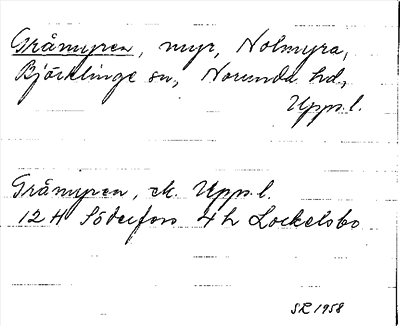 Gråmyren, myr, Nolmyra,
Björklinge sn, Norunda hd,
Upps.l.
Gråmyren, ek. Upps.l.
12 H Söderfors 4 h Lockelsbo
SR 1958